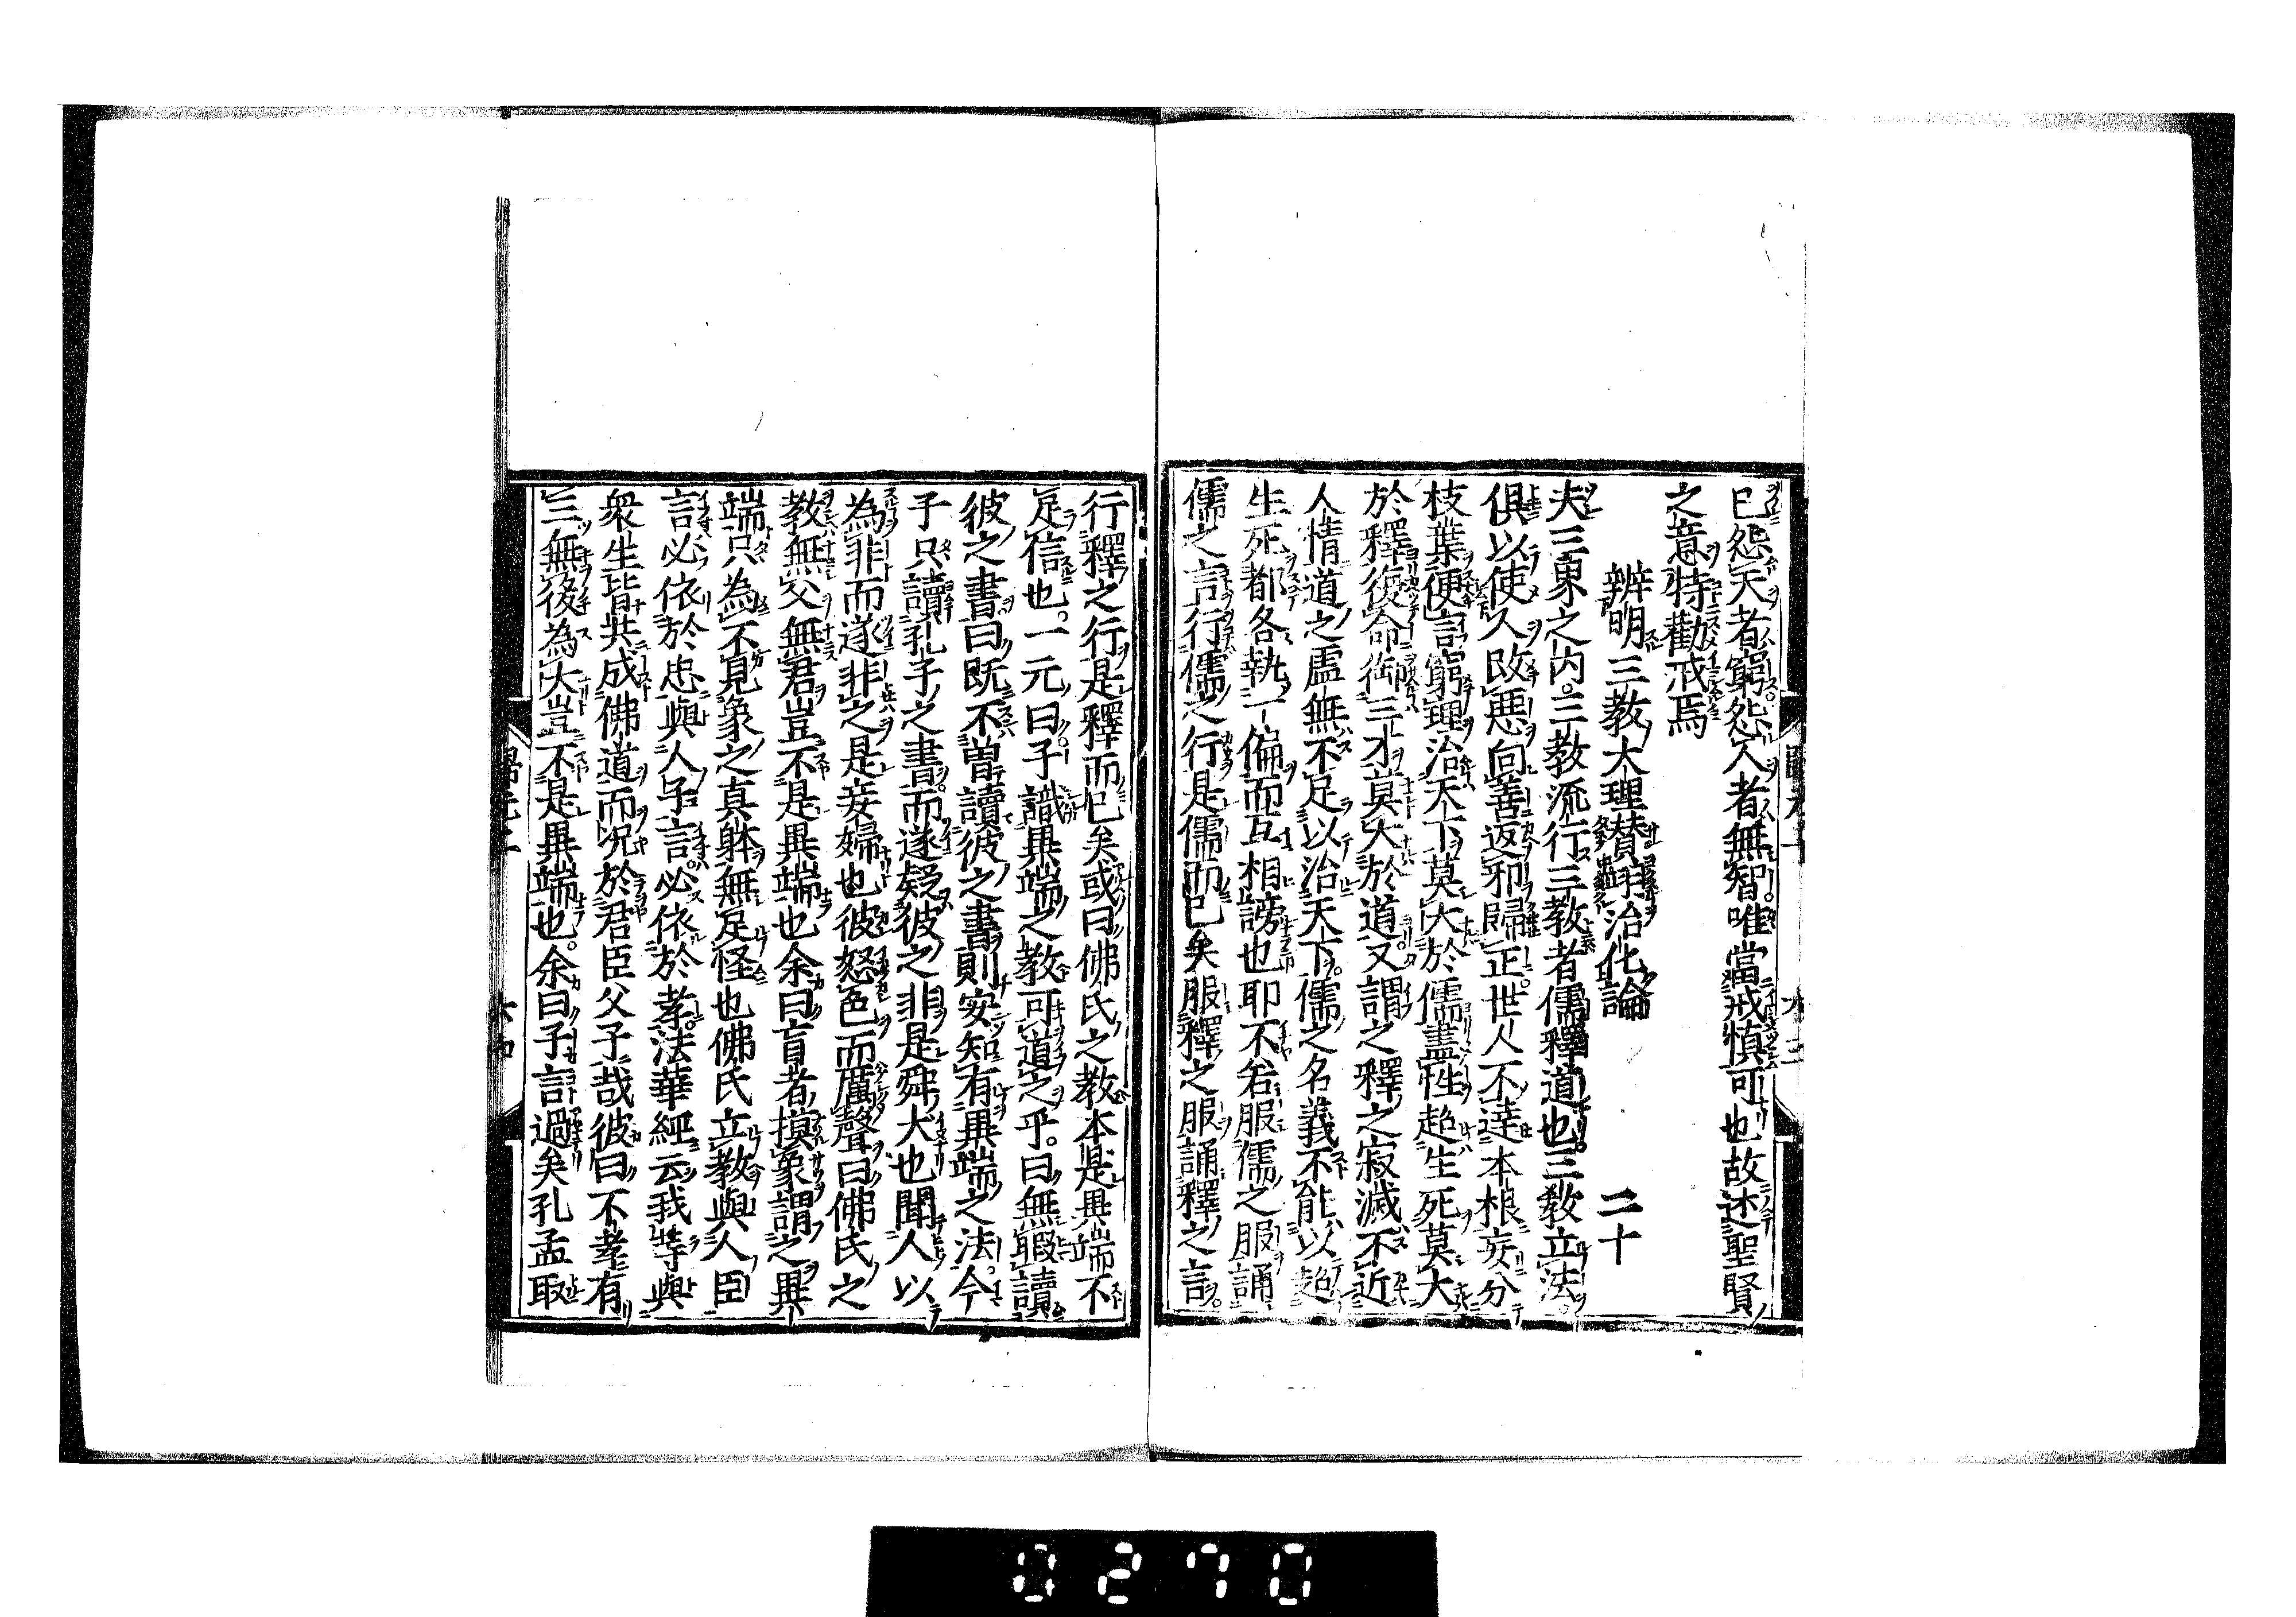 已怨天者窮怨人者無智唯當戒慎可也故述聖賢
之意特勸戒焉
辨明三教大理贊明治化論 二十
夫三界之内三教流行三教者儒釋道也三教立法
俱以使人改悪向善返邪歸正世人不達本根妄分
枝葉便言窮理治天下莫大於儒盡性超生死莫大
於釋復命御三才莫大於道又謂之釋之寂滅不近
人情道之虛無不足以治天下儒之名義不能以超
生死都各執一偏而互相謗也耶不若服儒之服誦
儒之言行儒之行是儒而已矣服釋之服誦釋之言
行釋之行是釋而已矣或曰佛氏之教本是異端不
足信也一元曰子識異端之教可道之乎曰無暇讀
彼之書曰既不曽讀彼之書則安知有異端之法今
子只讀孔子之書而遂疑彼之非是舜犬也聞人以
為非而遂非之是妾婦也彼怒色而厲聲曰佛氏之
教無父無君豈不是異端也余曰盲者摸象謂之異
端只為不見象之真躰無足怪也佛氏立教與人臣
言必依於忠與人子言必依於孝法華經云我等與
衆生皆共成佛道而況於君臣父子哉彼曰不孝有
三無後為大豈不是異端也余曰子言過矣孔孟取
0270